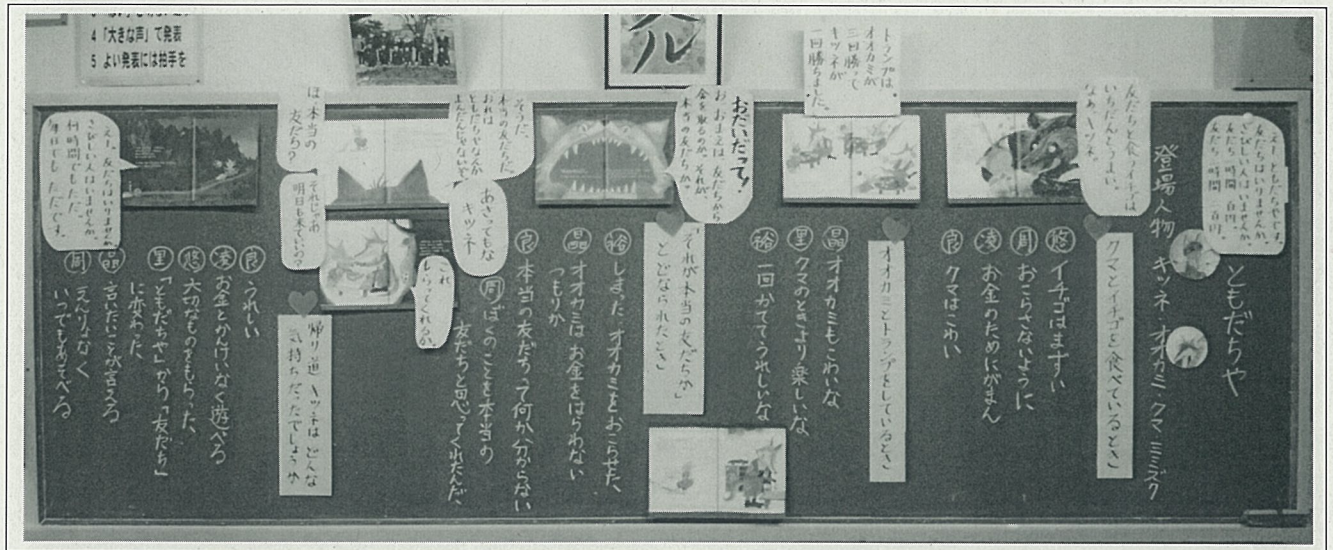 4 「大きな声」で発表
5 よい発表には拍手を
ル
ともだちや
登場人物 キツネ・オオカミ・クマ ミミズク
えー、ともだちやです。
友だちはいりませんか。
さびしい人はいませんか。
友だち一時間 百円。
友だち一時間 百円。
友だちと食うイチゴは
いちだんとうまい。
なあキツネ。
クマとイチゴを食べているとき
悠 イチゴはまずい
周 おこらさないように
凌 お金のためにがまん
良 クマはこわい
トランプは、
オオカミが
三回勝って
キツネが
一回勝ちました。
オオカミとトランプをしているとき
晶 オオカミもこわいな
里 クマのときより楽しいな
裕 一回かててうれしいな
おだいだって!
お、おまえは、友だちから
金を取るのか。それが、
本当の友だちか。
「それが本当の友だちか」
とどなられたとき
裕 しまった、オオカミをおこらせた、
晶 オオカミはお金をはらわない
つもりか
良 本当の友だちって何か分からない
周 ぼくのことを本当の
友だちと思ってくれたんだ、
そうだ、
本当の友だちだ。
おれは
ともだちやなんか
よんだんじゃないぞ。
ほ、本当の
友だち?
それじゃあ
明日も来ていいの?
あさってもな
キツネ
これ
もらってくれるか。
帰り道 キツネは どんな
気持ちだったでしょうか
良 うれしい
凌 お金とかんけいなく遊べる
悠 大切なものをもらった、
里 「ともだちや」から「友だち」
に変わった
晶 言いたいことが言える
周 えんりょなく
いつでもあそべる
えー、友だちはいりませんか。
さびしい人はいませんか。
何時間でもただ。
毎日でも ただです。